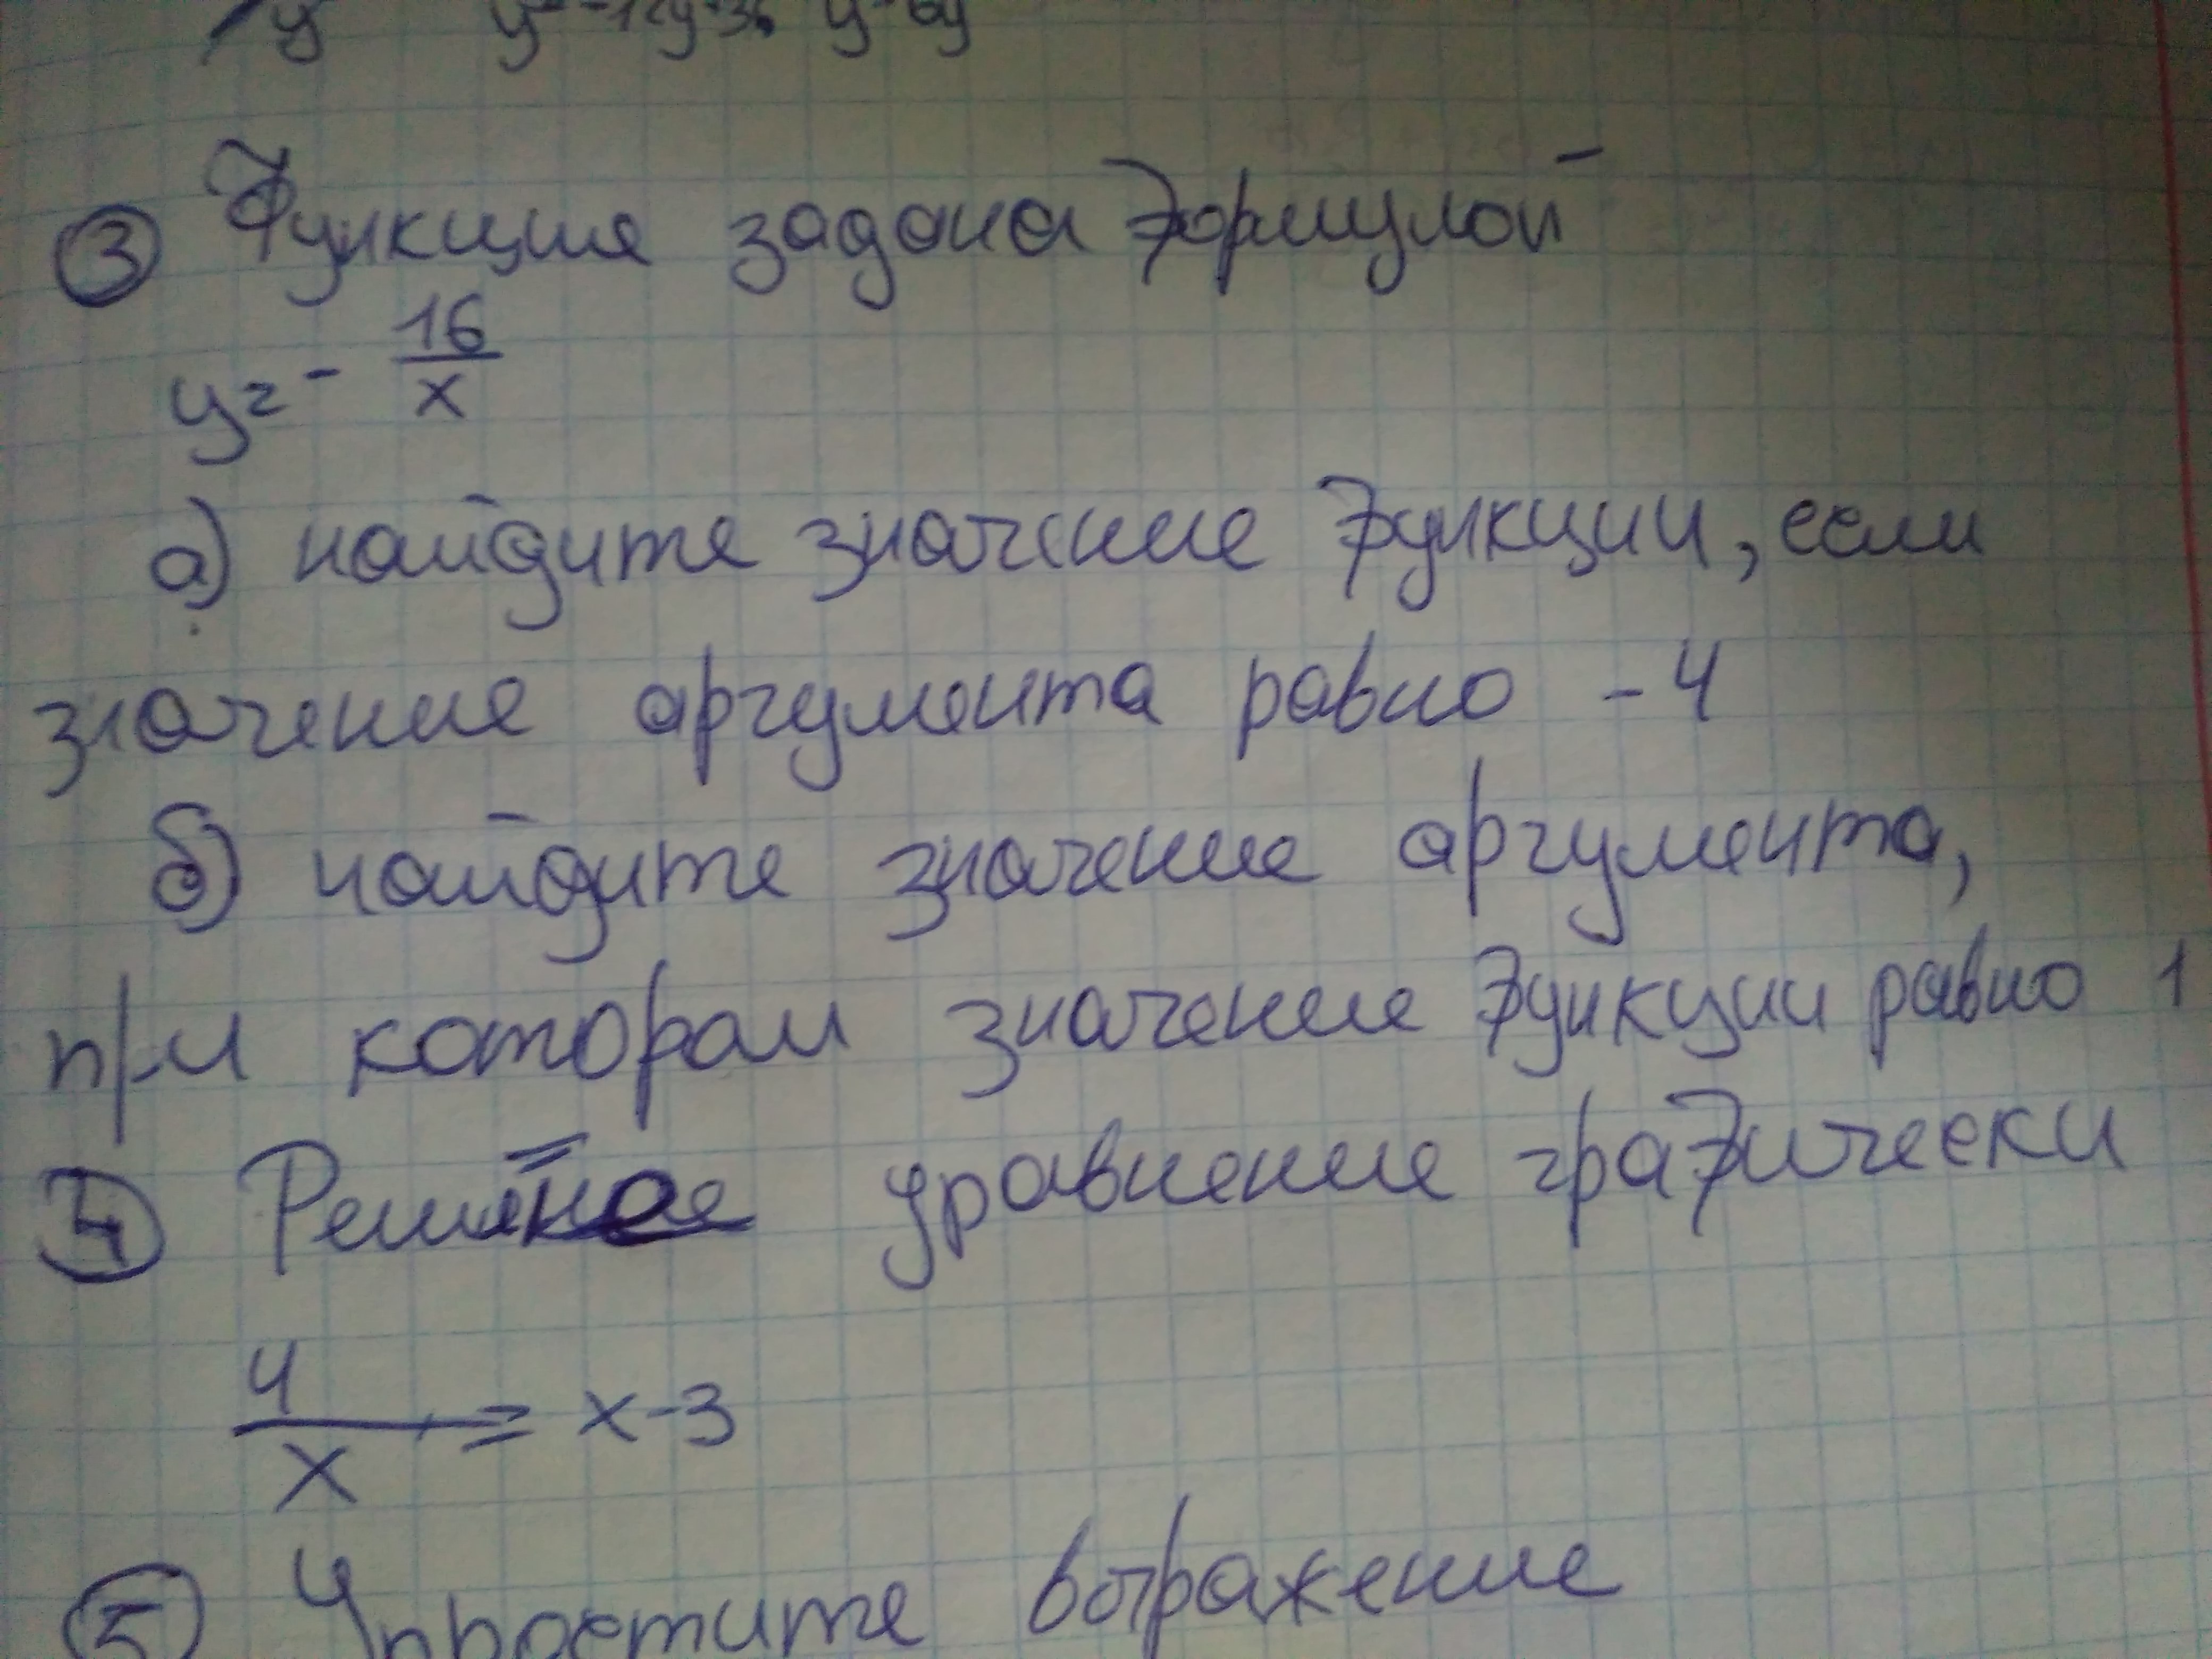 ③ Функция задана формулой
y = - 16/x
а) найдите значение функции, если
значение аргумента равно -4
б) найдите значение аргумента,
при котором значение функции равно 1
④ уравнение графически
4/x = x-3
⑤ Упростите выражение